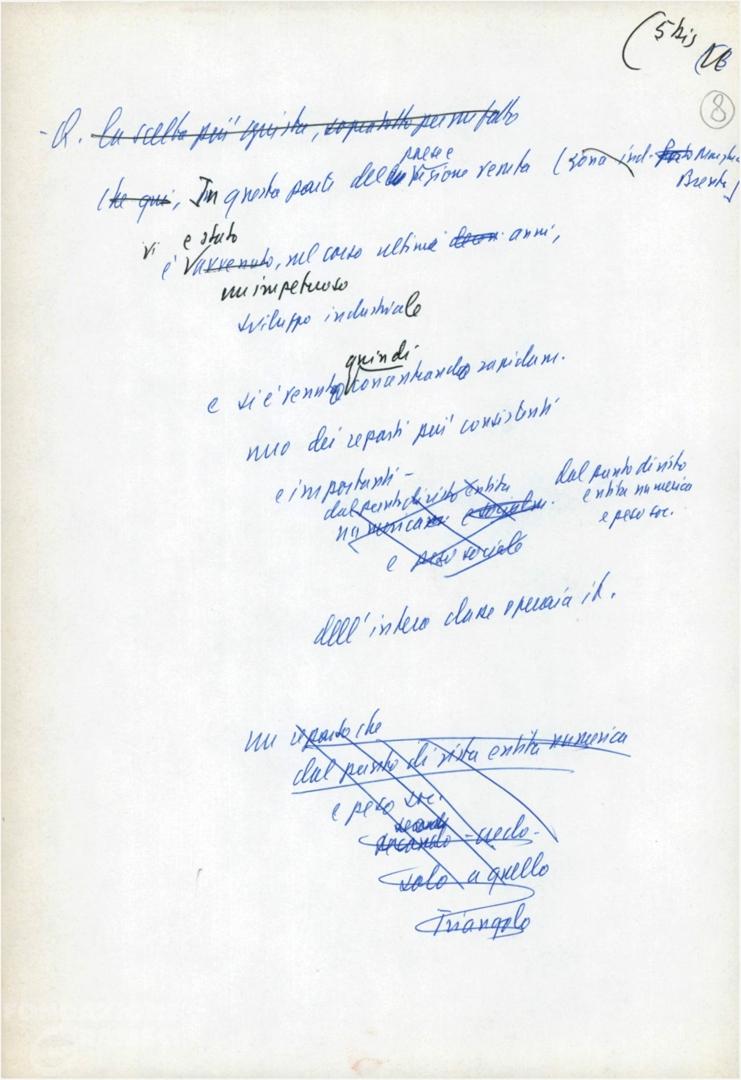 (5 bis
NB
8
- Q. la scelta più giusta, sopratutto per un fatto
paese
che qui, In questa parte della regione veneta (zona ind. Porto Marghera
Brenta)
vi è stato
è avvenuto, nel corso ultimi anni,
un impetuoso
sviluppo industriale
quindi
e si è venuto concentrando rapidam.
uno dei reparti più consistenti
e importanti -
dal punto di vista entità
numerica e
e peso sociale
dal punto di vista
entità numerica
e peso soc.
dell'intera classe operaia it.
un reparto che
dal punto di vista entità numerica
e peso soc.
secondo
secondo - credo -
solo a quello
Triangolo